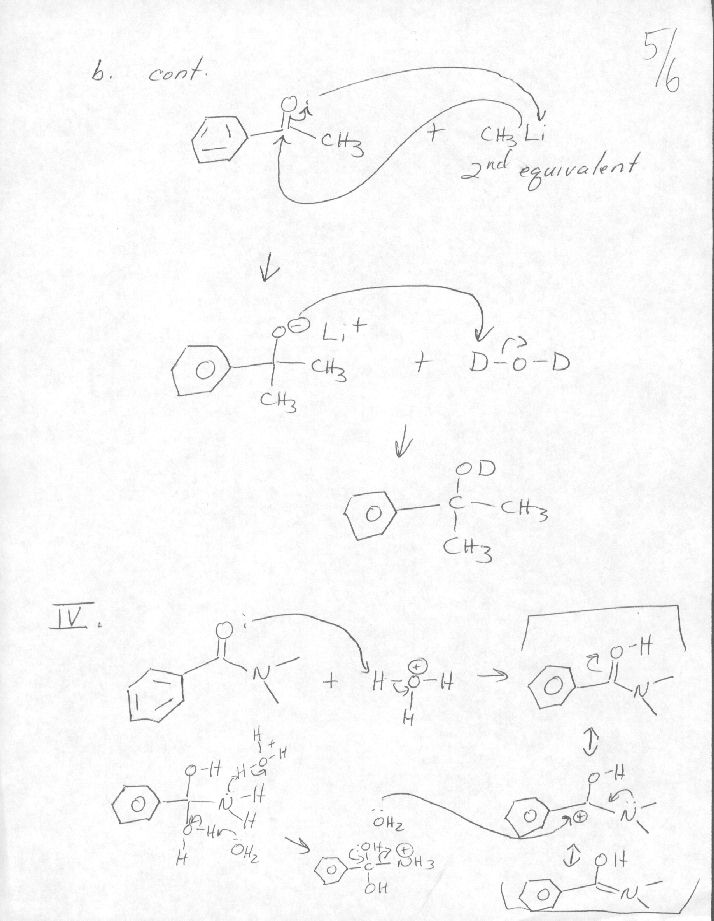 5/6
b. cont.
O
CH3 + CH3Li
2nd equivalent
O ⊖ Li+
CH3 + D-O-D
CH3
OD
C - CH3
CH3
IV.
O
N + H-O-H
⊕
H
O-H
N
H
H-O-H
+
O-H
N-H
H
O-H
H
OH2
OH2
O-H
⊕ N
OH
C
⊕
NH3
OH
OH
N